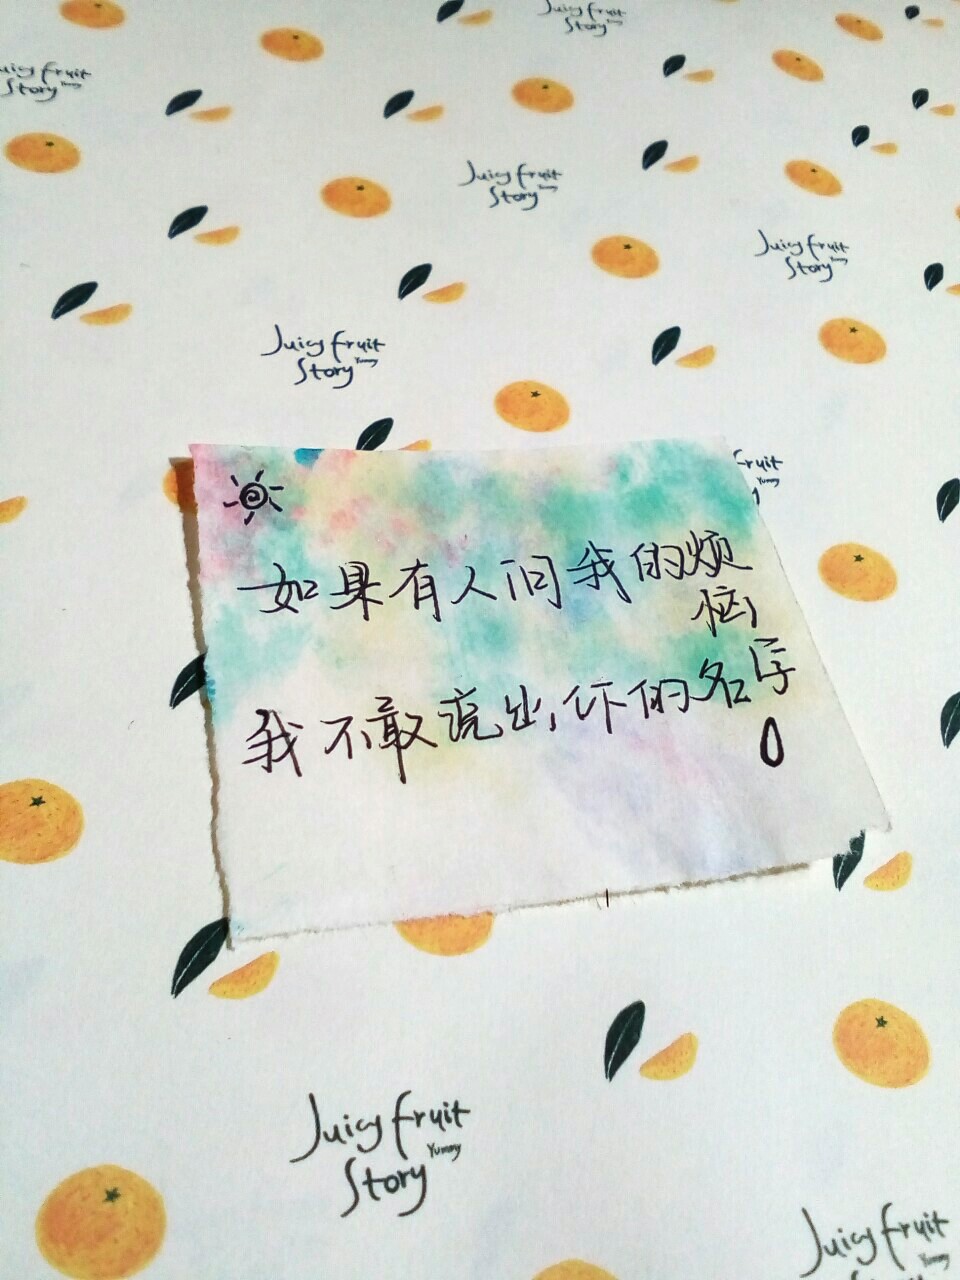 Juicy fruit
Story Yummy
Juicy fruit
Story Yummy
Juicy fruit
Story Yummy
Juicy fruit
Story Yummy
Juicy fruit
Story Yummy
fruit
Yummy
如果有人问我的烦恼
我不敢说出你的名字。
Juicy fruit
Yummy
Story
Juicy fruit
Yummy